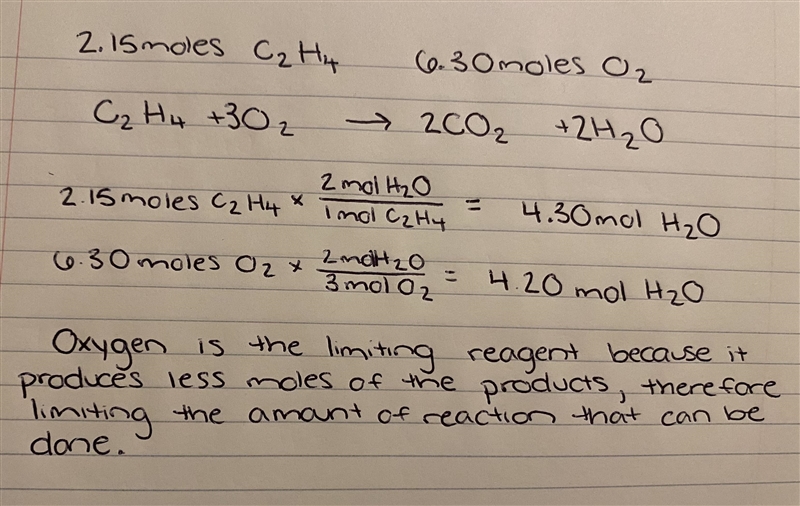 2.15moles C₂H₄ 6.30moles O₂
C₂H₄ +3O₂ → 2CO₂ +2H₂O
2.15moles C₂H₄ × 2mol H₂O / 1mol C₂H₄ = 4.30mol H₂O
6.30moles O₂ × 2molH₂O / 3molO₂ = 4.20 mol H₂O
Oxygen is the limiting reagent because it
produces less moles of the products, therefore
limiting the amount of reaction that can be
done.